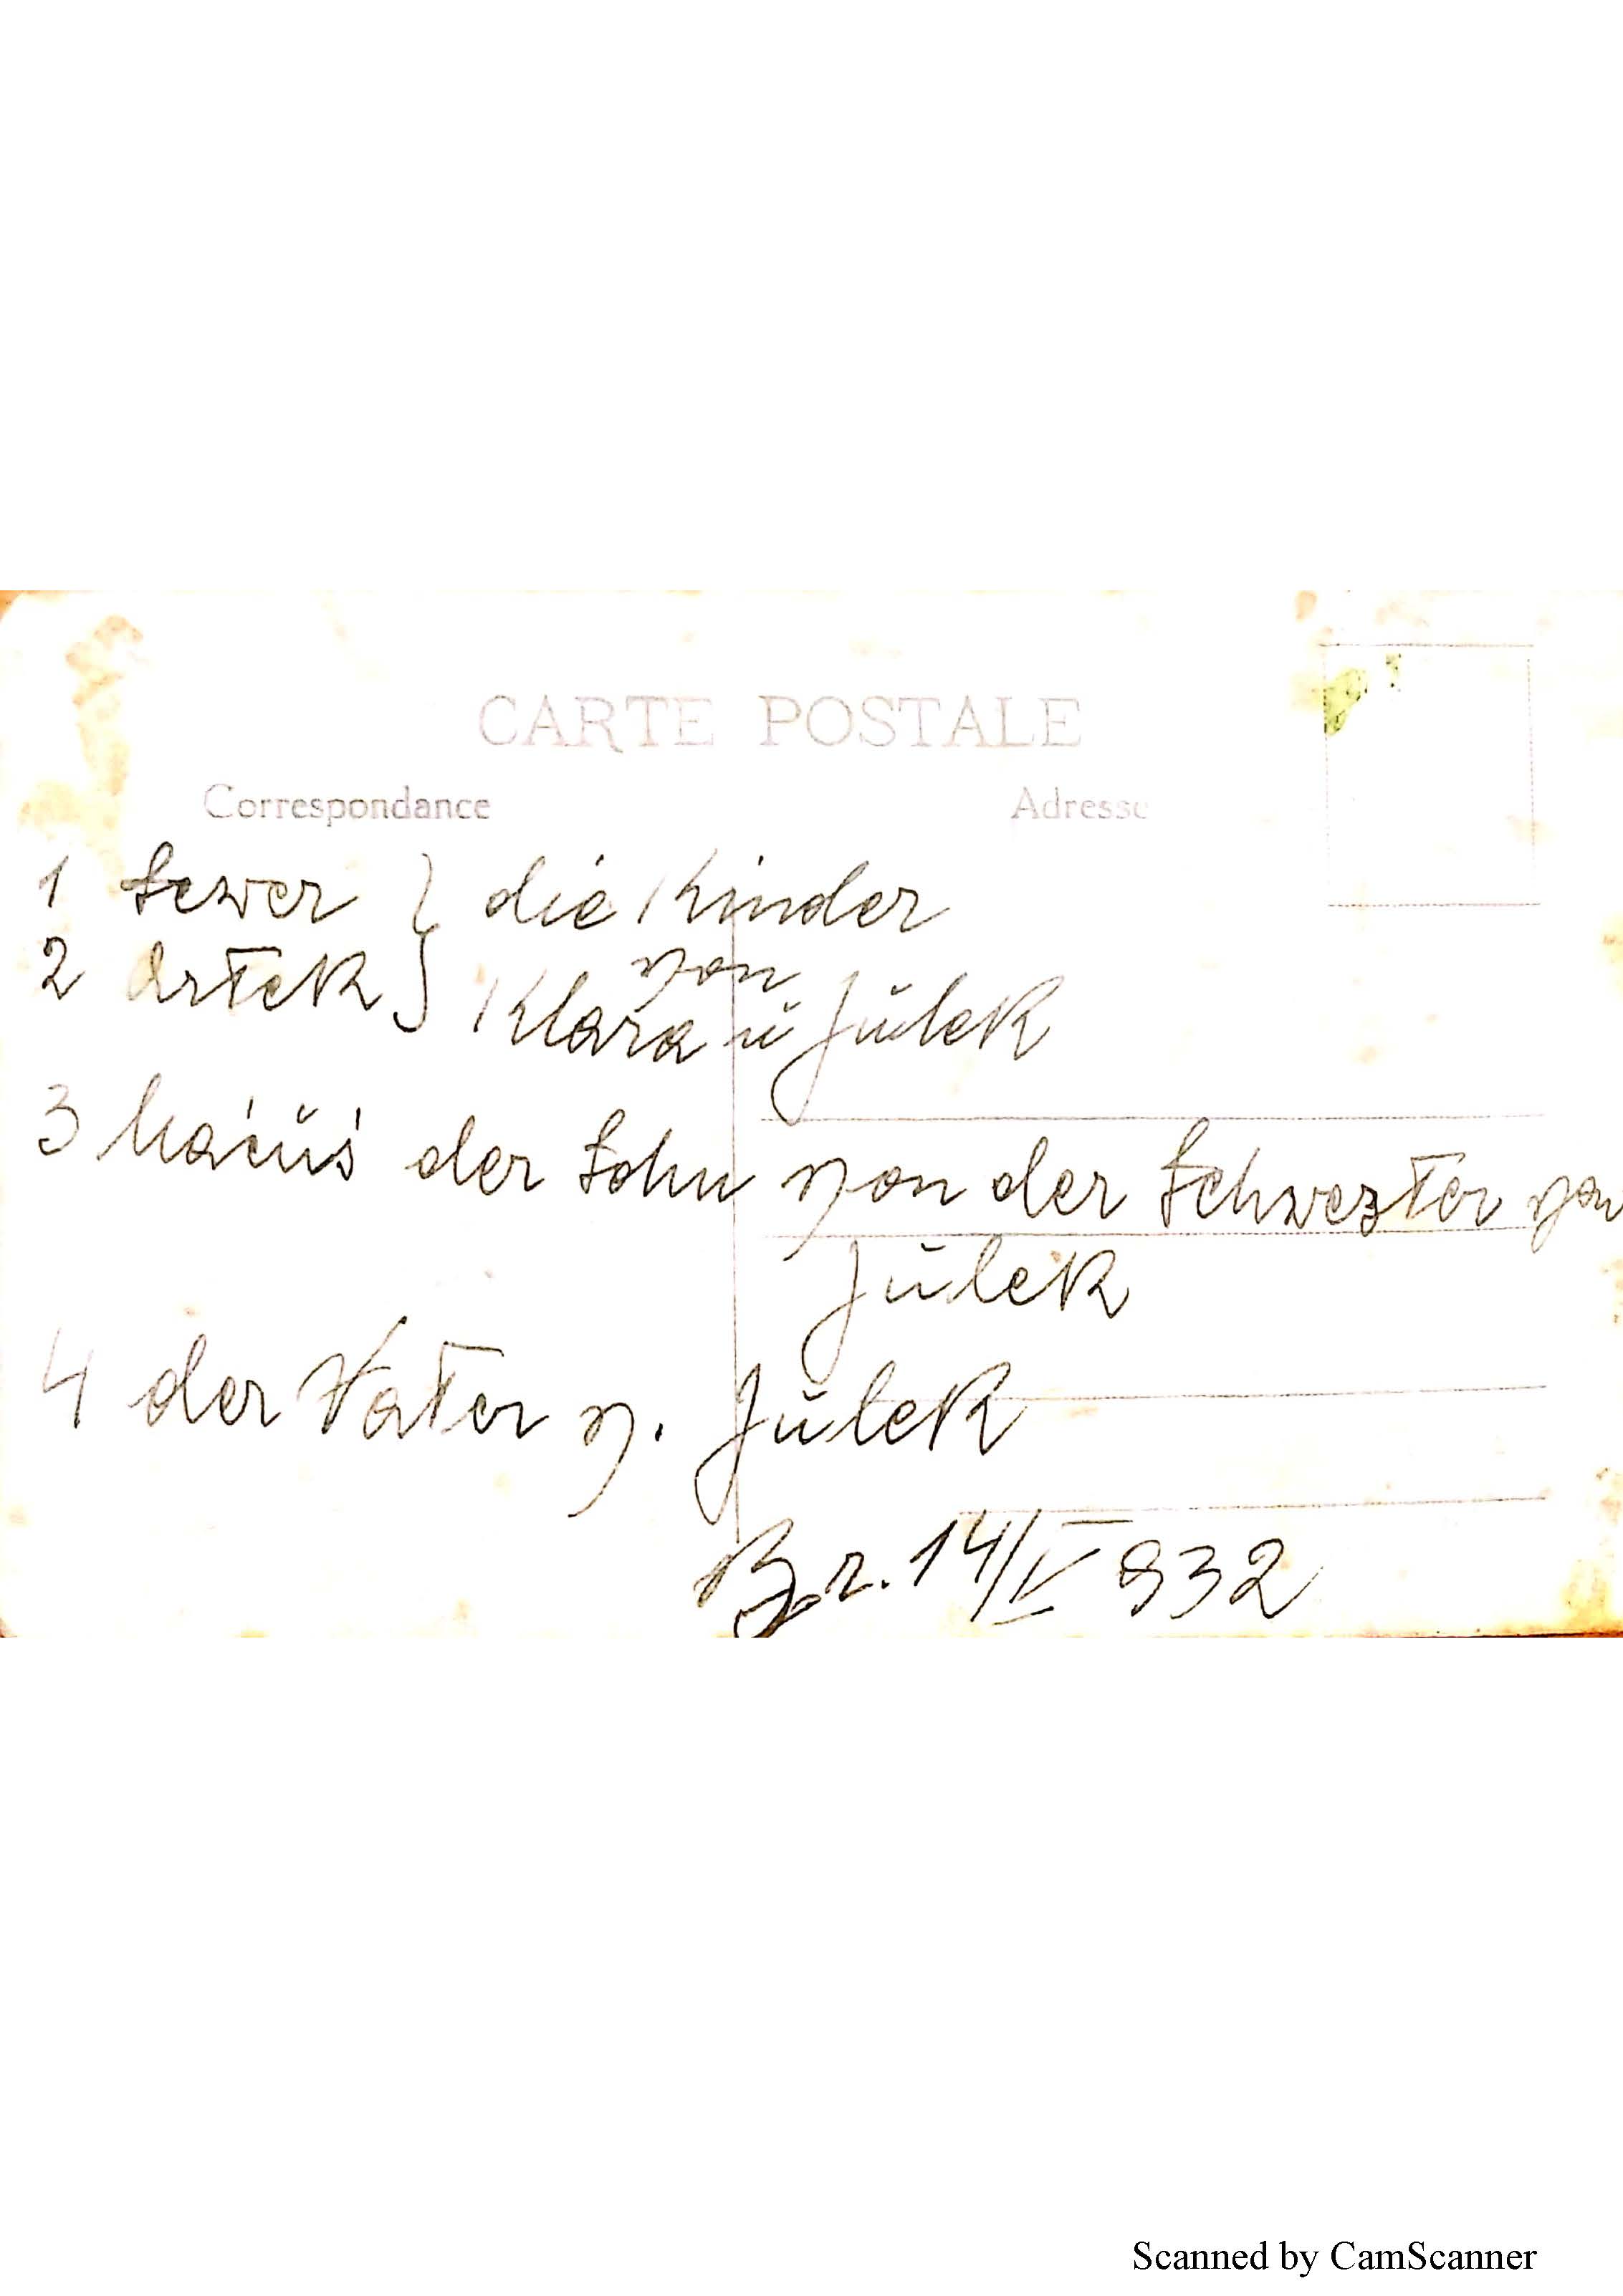 CARTE POSTALE
Correspondance Adresse
1 Sewer } die Kinder
2 Artek } von
Klara u Julek
3 Maciuś der Sohn von der Schwester von
Julek
4 der Vater v. Julek
Br. 14/V 932
Scanned by CamScanner